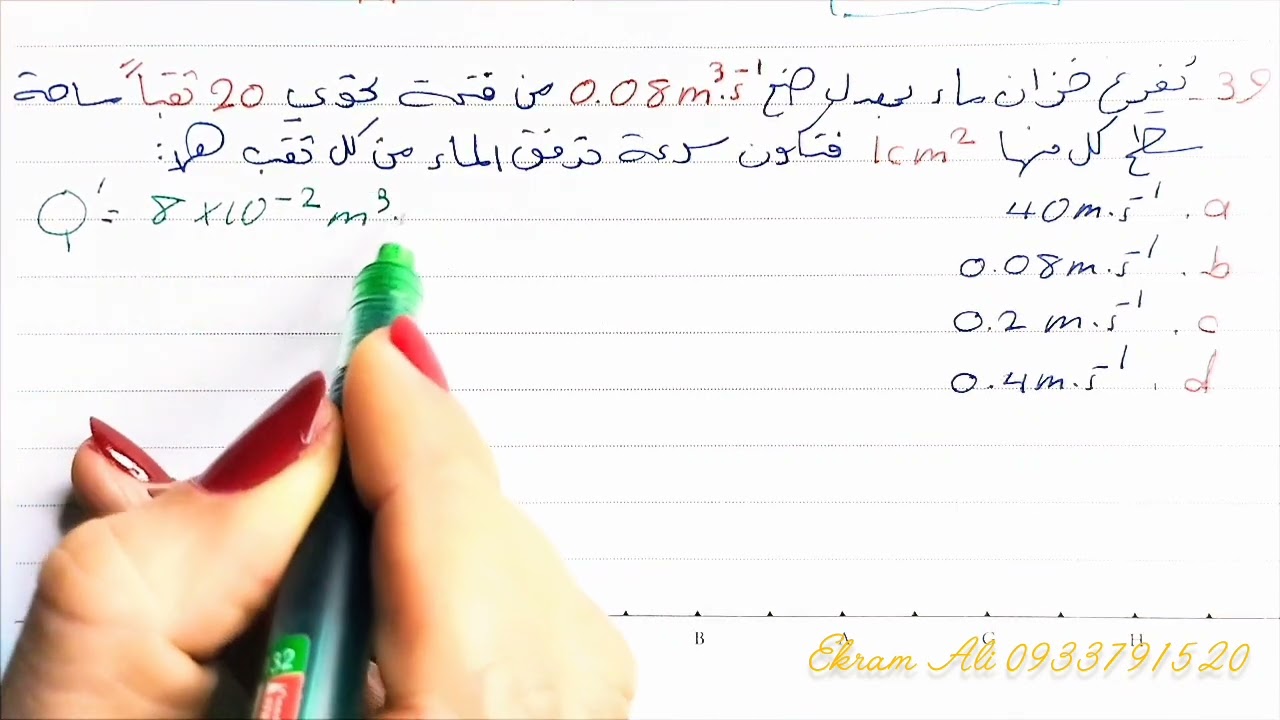 39_ نفرغ خزان ماء بمعدل ضخ 0.08m³.s⁻¹ من فتحة تحوي 20 ثقباً مساحة
سطح كل منها 1cm² فتكون سرعة تدفق الماء من كل ثقب هو:
Q' = 8×10⁻² m³.
a. 40m.s⁻¹
b. 0.08m.s⁻¹
c. 0.2 m.s⁻¹
d. 0.4m.s⁻¹
B A G H
Ekram Ali 0933791520
32